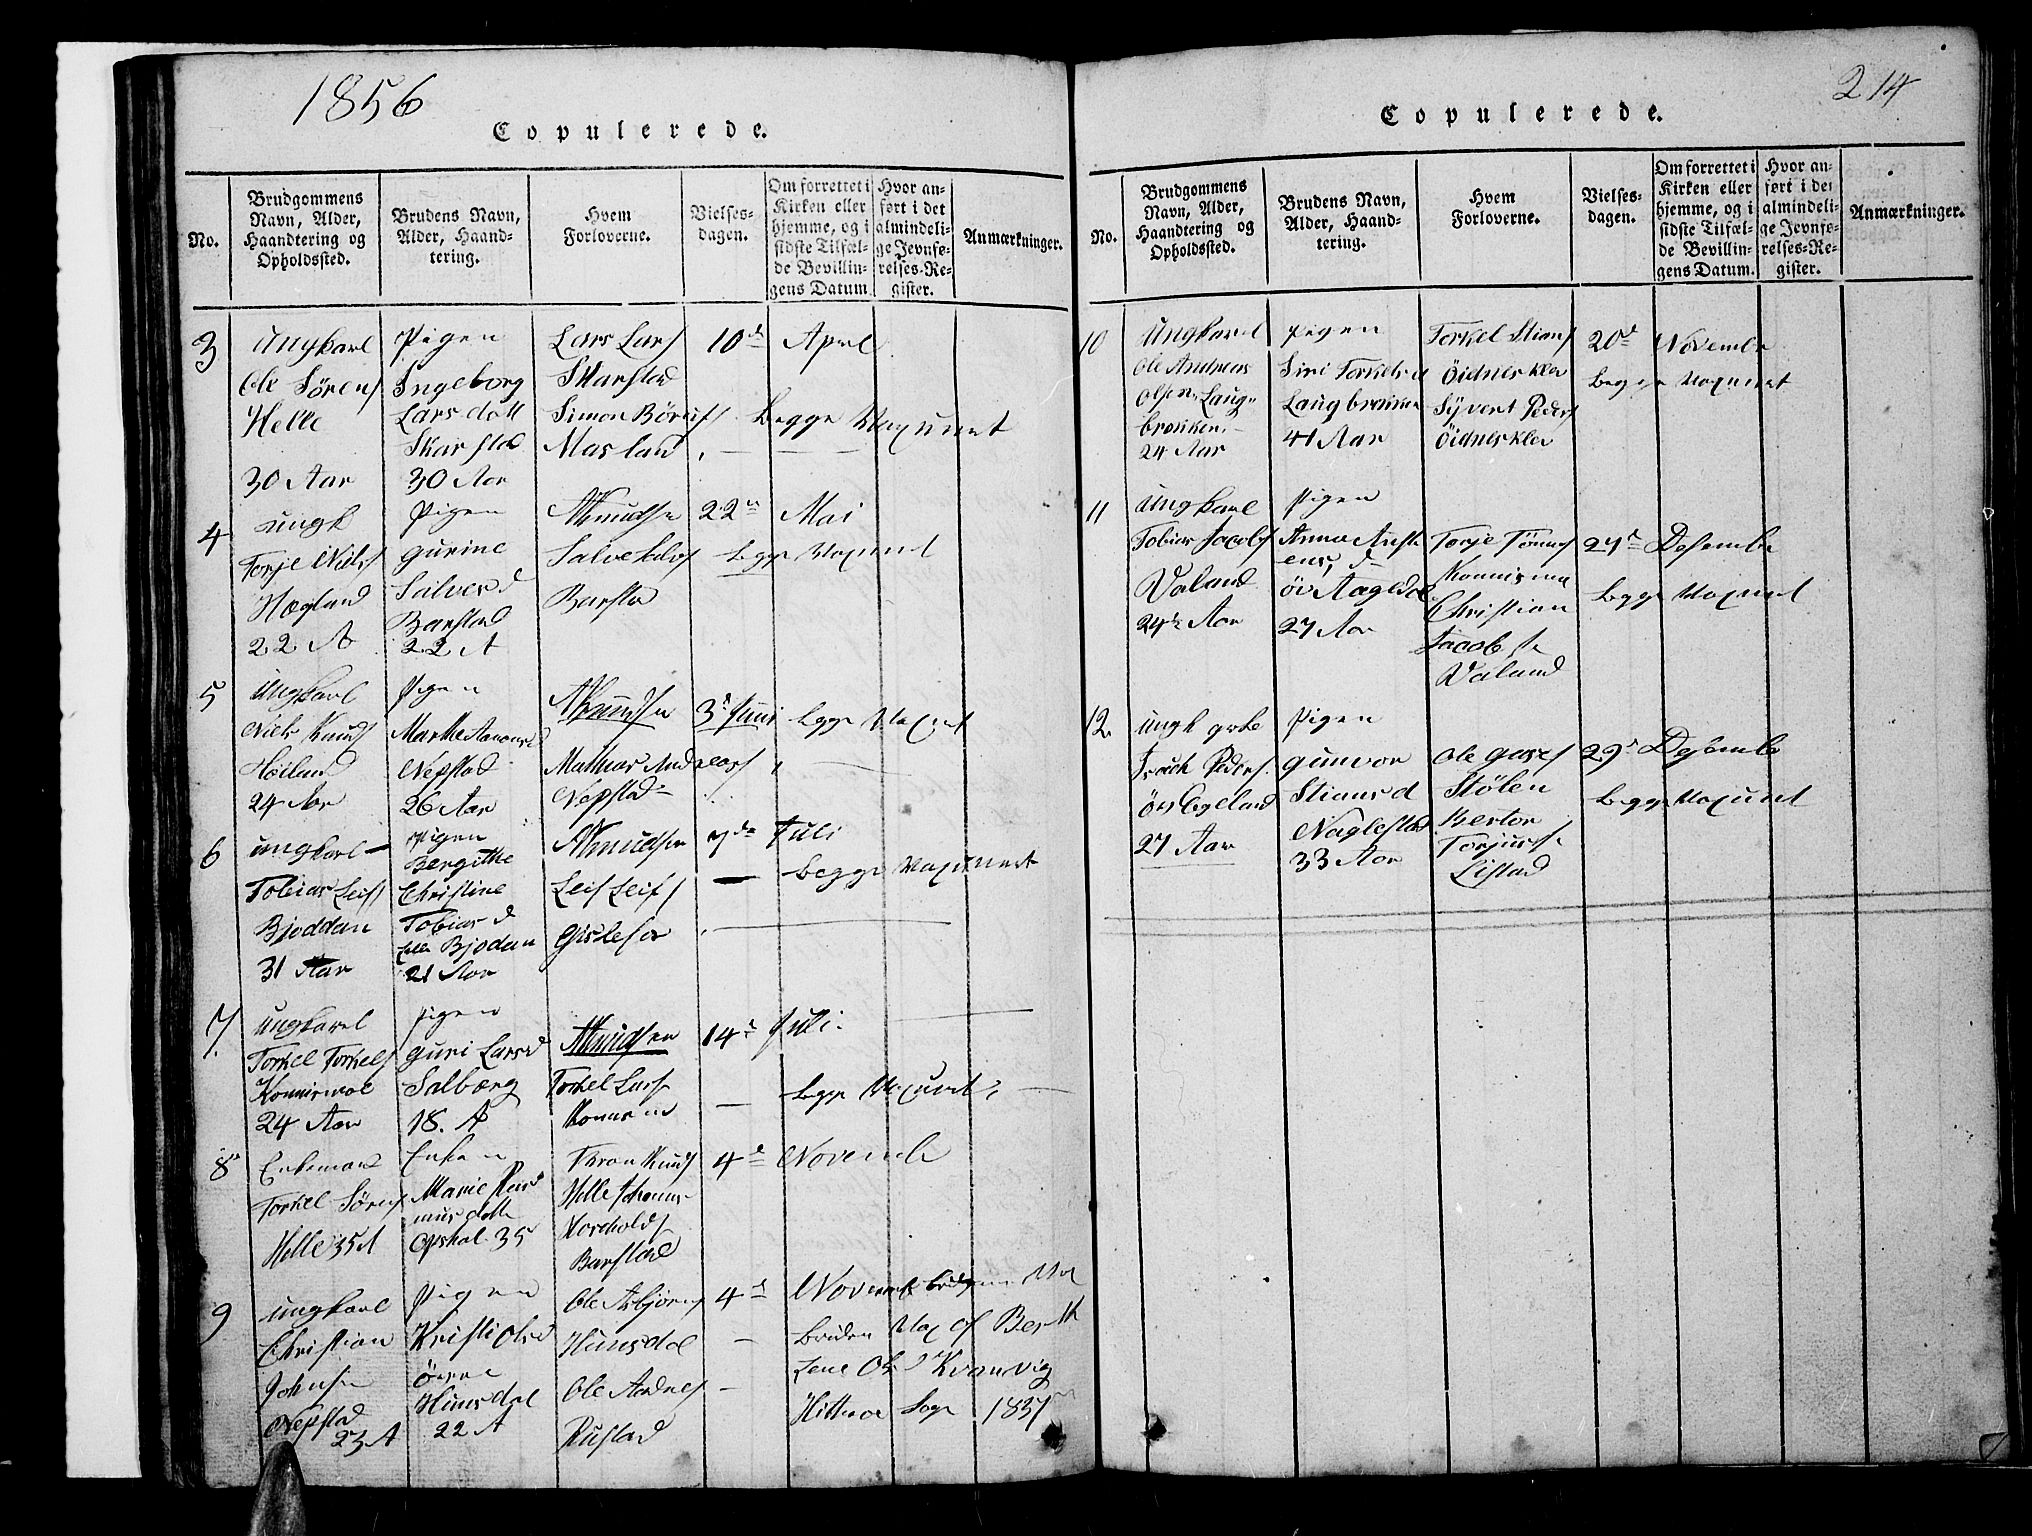 1856
Copulerede.
No.
Brudgommens
Navn, Alder,
Haandtering og
Opholdssted.
Brudens Navn,
Alder, Haand-
tering.
Hvem
Forloverne.
Vielses-
dagen.
Om forrettet i
Kirken eller
hjemme, og i
sidste Tilfæl-
de Bevillin-
gens Datum.
Hvor an-
ført i det
almindeli-
ge Jevnfø-
relses-Re-
gister.
Anmærkninger.
3
Ungkarl
Ole Sørens
Helle
30 Aar
Pigen
Ingeborg
Lars datt
Skarstad
30 Aar
Lars Lars
Skarstad
Simon Börufs
Masland
10d April
Begge Vaxunet
4
ungk
Torje Niels
Hægland
22 A
Pigen
gurine
Salves d
Barstad
22 A
AKnudsen
Salve Salvs
Barstad
22n Mai
begge Vaxunet
5
Ungkarl
Niels Knuds
Høiland
24 Aar
Pigen
Marthe Aanonsd
Nepstad
26 Aar
AKnudsen
Mathias Andreas
Nepstad
3d Juni begge Vaxunet
6
ungkarl
Tobias Leifs
Bjoddan
31 Aar
Pigen
Bergithe
Christine
Tobias d
Bjodan
21 Aar
AKnudsen
Leif Leifs
Gislefoe
7de Juli
Begge Vaxunet
7.
Ungkarl
Torkel Torkels
Konnismoe
24 Aar
Pigen
guri Larsd
Salbærg
18. A
AKnudsen
Torkel Lars
14d Juli.
begge Vaxunet
8
Enkemand
Torkel Sörens
Helle 35 A
Enken
Marie Ras
mus datt
Opshal 35
Tron Knuds
Helle Johannes
Barstad
4d Novemb
9
ungkarl
Christian
Johnsen
Nepstad
23 A
Pigen
Kristi Olsd
övre
Hunsdal
22 A
Ole Asbjörns
Hunsdal
Ole Aadnes
Rustad
4d November
Bruden Vax af Berth
Lene Ols d Kvanvig
Hitterøe Sogn 1837
214
Copulerede.
No.
Brudgommens
Navn, Alder,
Haandtering og
Opholdssted.
Brudens Navn,
Alder, Haand-
tering.
Hvem
Forloverne.
Vielses-
dagen.
Om forrettet i
Kirken eller
hjemme, og i
sidste Tilfæl-
de Bevillin-
gens Datum.
Hvor an-
ført i det
almindeli-
ge Jevnfø-
relses-Re-
gister.
Anmærkninger.
10
Ungkarl
Ole Andreas
Olsen Laug-
brækken
24 Aar
Pigen
Siri Torkelsd
Laugbrækken
41 Aar
Torkel Stians
Öidnesklev
Syvert Peders
Öidnesklev
20d November
Begge Vaxunet
11
Ungkarl
Tobias Jacobs
Valand
24½ Aar
Pigen
Anna Aust
ens, d
öv Aagedal
27 Aar
Torje Tönnes
Konnismoe
Christian
Jacobsen
Valand
27d Desembe
begge Vaxunet
12.
ungk
Isach Peders.
Övs Egeland
27 Aar
Pigen
gunvor
Stians d
Naglestad
33 Aar
Ole
Stölen
Berton
Torjuss
Listad
29d Desembe
begge Vaxunet